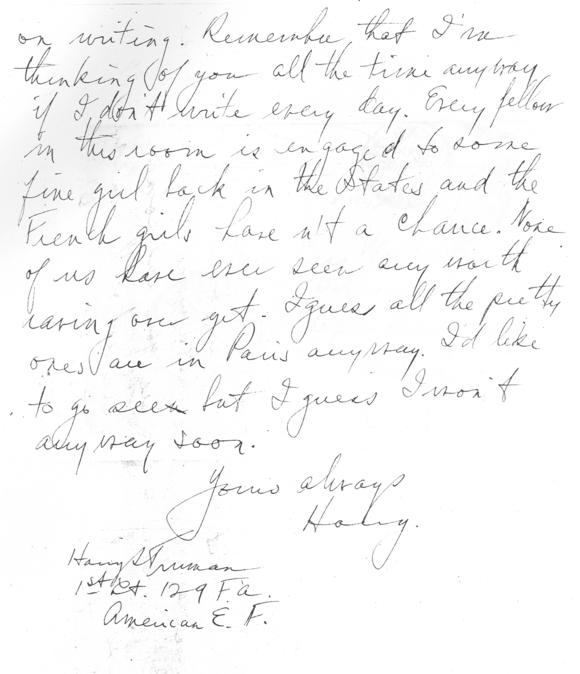 on writing. Remember that I'm
thinking of you all the time anyway
if I don't write every day. Every fellow
in this room is engaged to some
fine girl back in the States and the
French girls haven't a chance. None
of us have ever seen any worth
raving over yet. I guess all the pretty
ones are in Paris anyway. I'd like
to go see but I guess I won't
anyway soon.
Yours always
Harry.
Harry S Truman
1st Lt. 129 F.A.
American E. F.